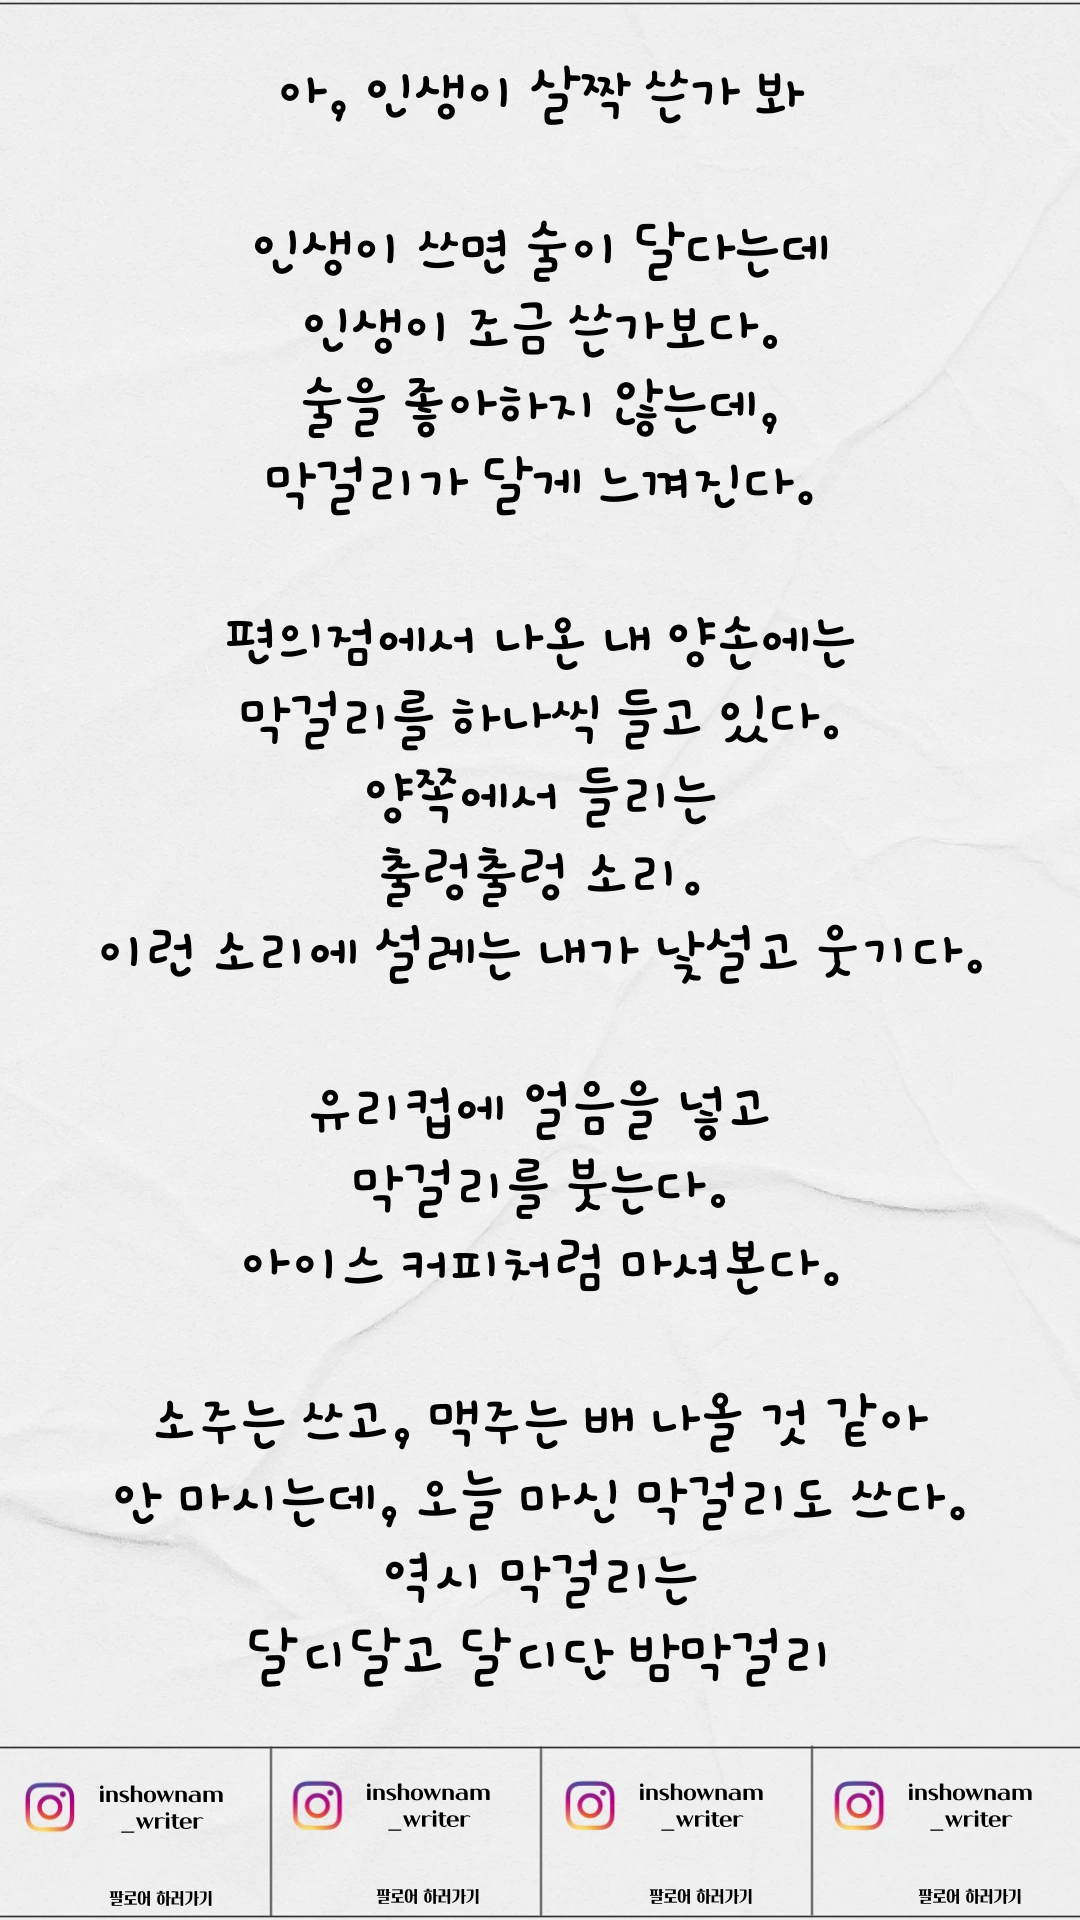 아, 인생이 살짝 쓴가 봐
인생이 쓰면 술이 달다는데
인생이 조금 쓴가보다.
술을 좋아하지 않는데,
막걸리가 달게 느껴진다.
편의점에서 나온 내 양손에는
막걸리를 하나씩 들고 있다.
양쪽에서 들리는
출렁출렁 소리.
이런 소리에 설레는 내가 낯설고 웃기다.
유리컵에 얼음을 넣고
막걸리를 붓는다.
아이스 커피처럼 마셔본다.
소주는 쓰고, 맥주는 배 나올 것 같아
안 마시는데, 오늘 마신 막걸리도 쓰다.
역시 막걸리는
달디달고 달디단 밤막걸리
inshownam
_writer
팔로어 하러가기
inshownam
_writer
팔로어 하러가기
inshownam
_writer
팔로어 하러가기
inshownam
_writer
팔로어 하러가기